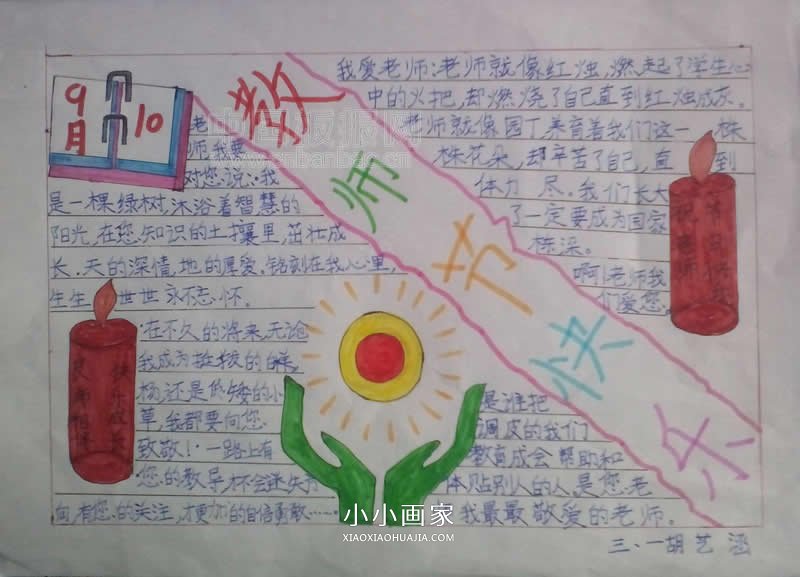 9月10
教师节快乐
我爱老师:老师就像红烛,燃起了学生心
中的火把,却燃烧了自己直到红烛成灰。
老师就像园丁,养育着我们这一株
株花朵,却辛苦了自己,直到
体力 尽。我们长大
了一定要成为国家
栋梁。
啊!老师我
们爱您。
老
师,我要
对您说:我
是一棵绿树,沐浴着智慧的
阳光,在您知识的土壤里,茁壮成
长.天的深情,地的厚爱.铭刻在我心里,
生生世世永志怀。
在不久的将来,无论
我成为挺拔的白
杨,还是低矮的小
草,我都要向您
致敬!一路上有
您的教导,才不会迷失方
向,有您的关注,才更加的自信勇敢……
是谁把
调皮的我们
教育成会帮助和
体贴别人的人,是您.老
我最最敬爱的老师。
快乐成长
小小画家
XIAOXIAOHUAJIA.COM
三、一胡艺涵